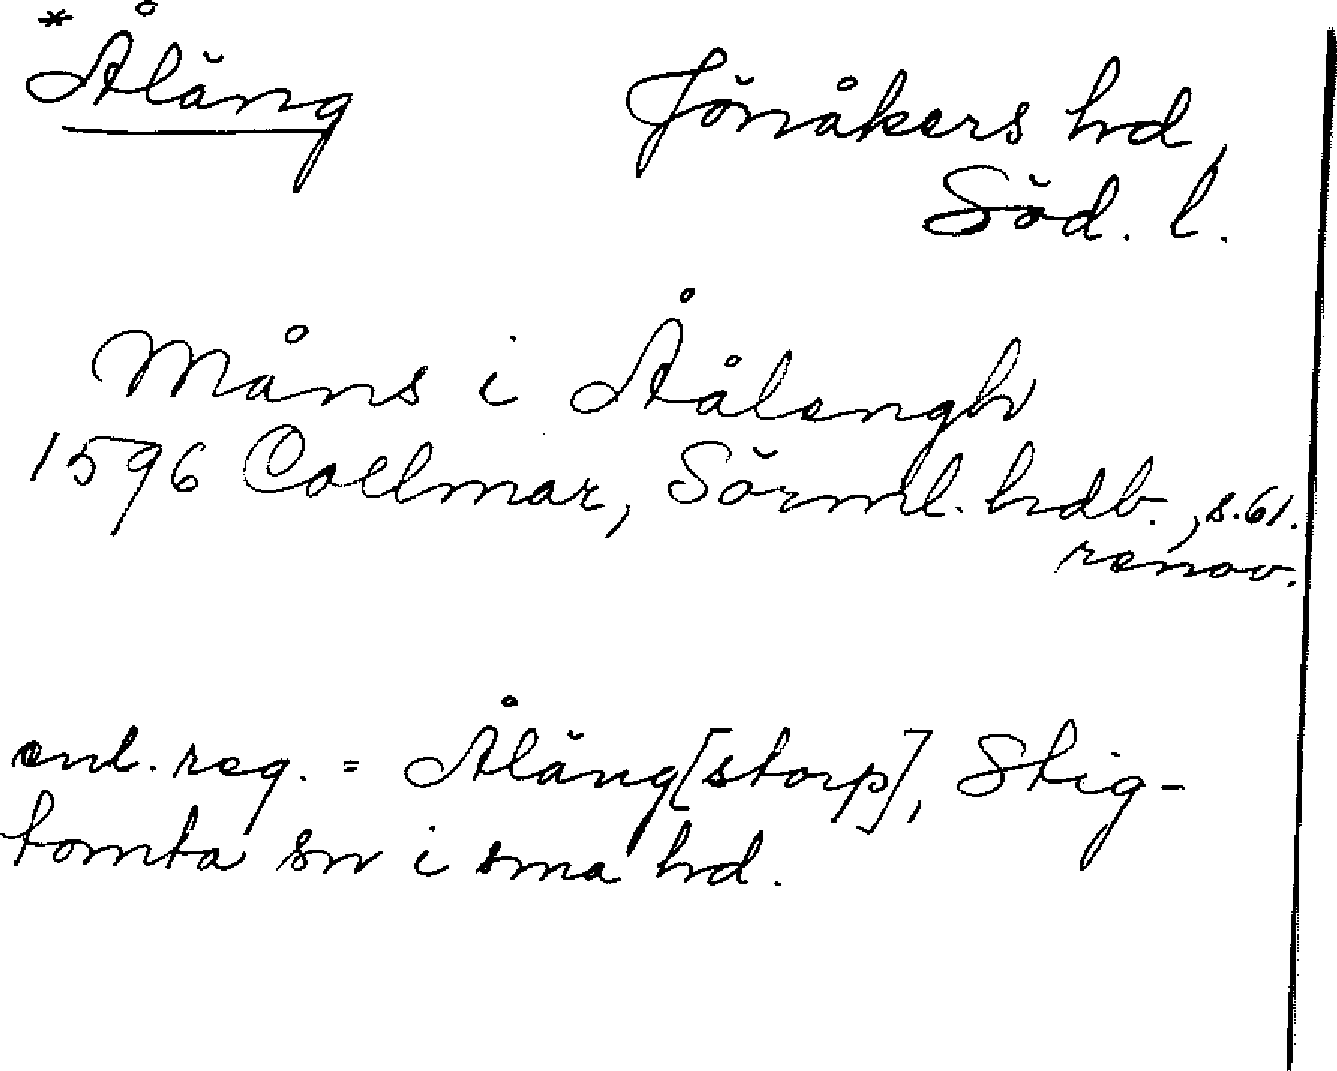 *Åläng Jönåkers hd,
Söd. l.
Måns i Åålengh
1596 Collmar, Sörml. hdb., s. 61.
renov.
enl. reg. = Åläng[storp], Stig-
tomta sn i sma hd.